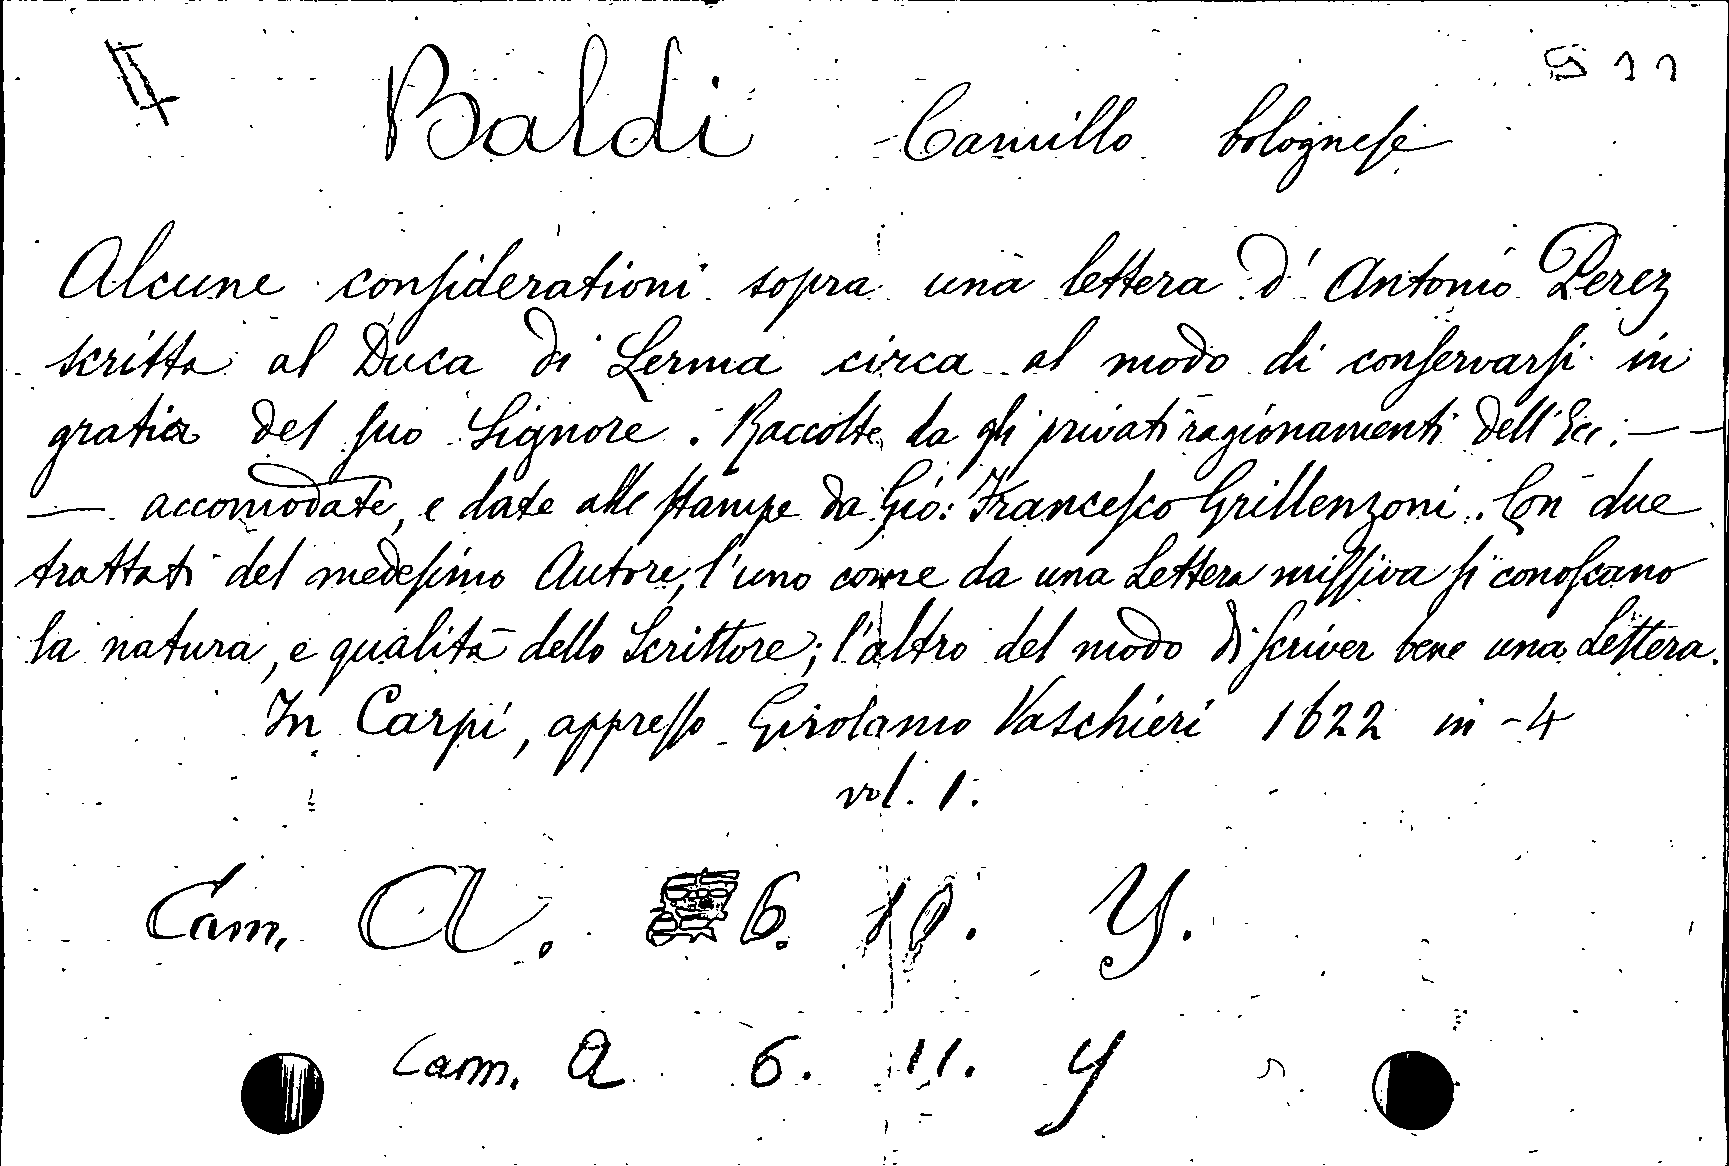 Baldi Camillo bolognese
Alcune considerationi sopra una lettera d'Antonio Perez
scritta al Duca di Lerma circa al modo di conservarsi in
gratia del suo Signore. Raccolte da gli privati ragionamenti dell'Ecc. — —
— accomodate, e date alle stampe da Gio: Francesco Grillenzoni. Con due
trattati del medesimo Autore, l'uno come da una Lettera missiva si conoscano
la natura, e qualità dello Scrittore; l'altro del modo di scriver bene una Lettera.
In Carpi, appresso Girolamo Vaschieri 1622 in-4
vol. 1.
Cam. A. 6. 10. Y.
Cam. A 6. 11. Y